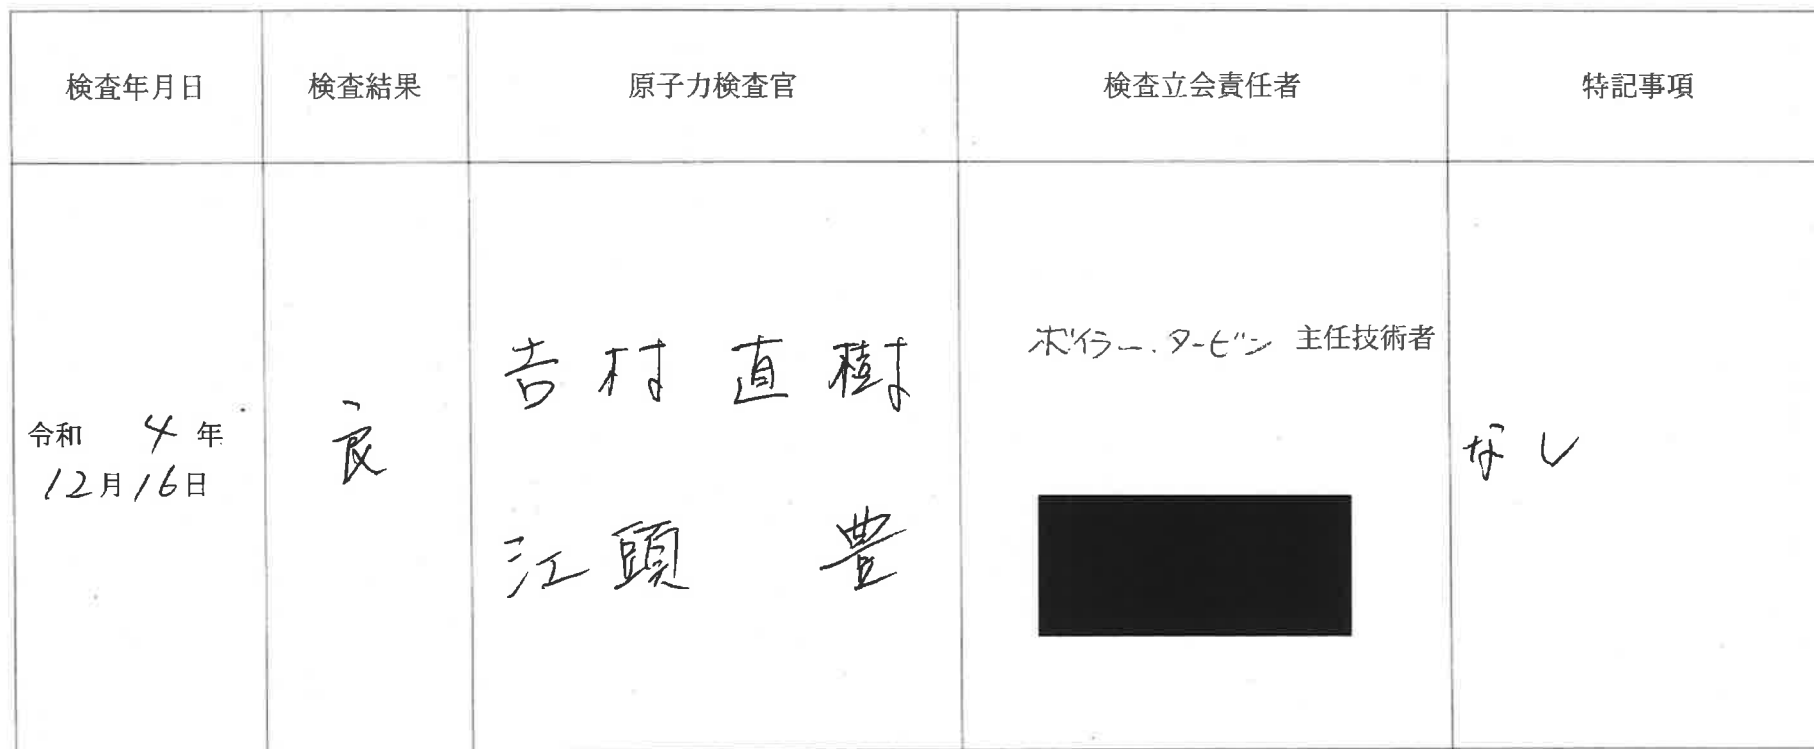 検査年月日 検査結果 原子力検査官 検査立会責任者 特記事項
令和 4 年
12月16日
良
吉村 直樹
江頭 豊
ボイラー・タービン 主任技術者
なし